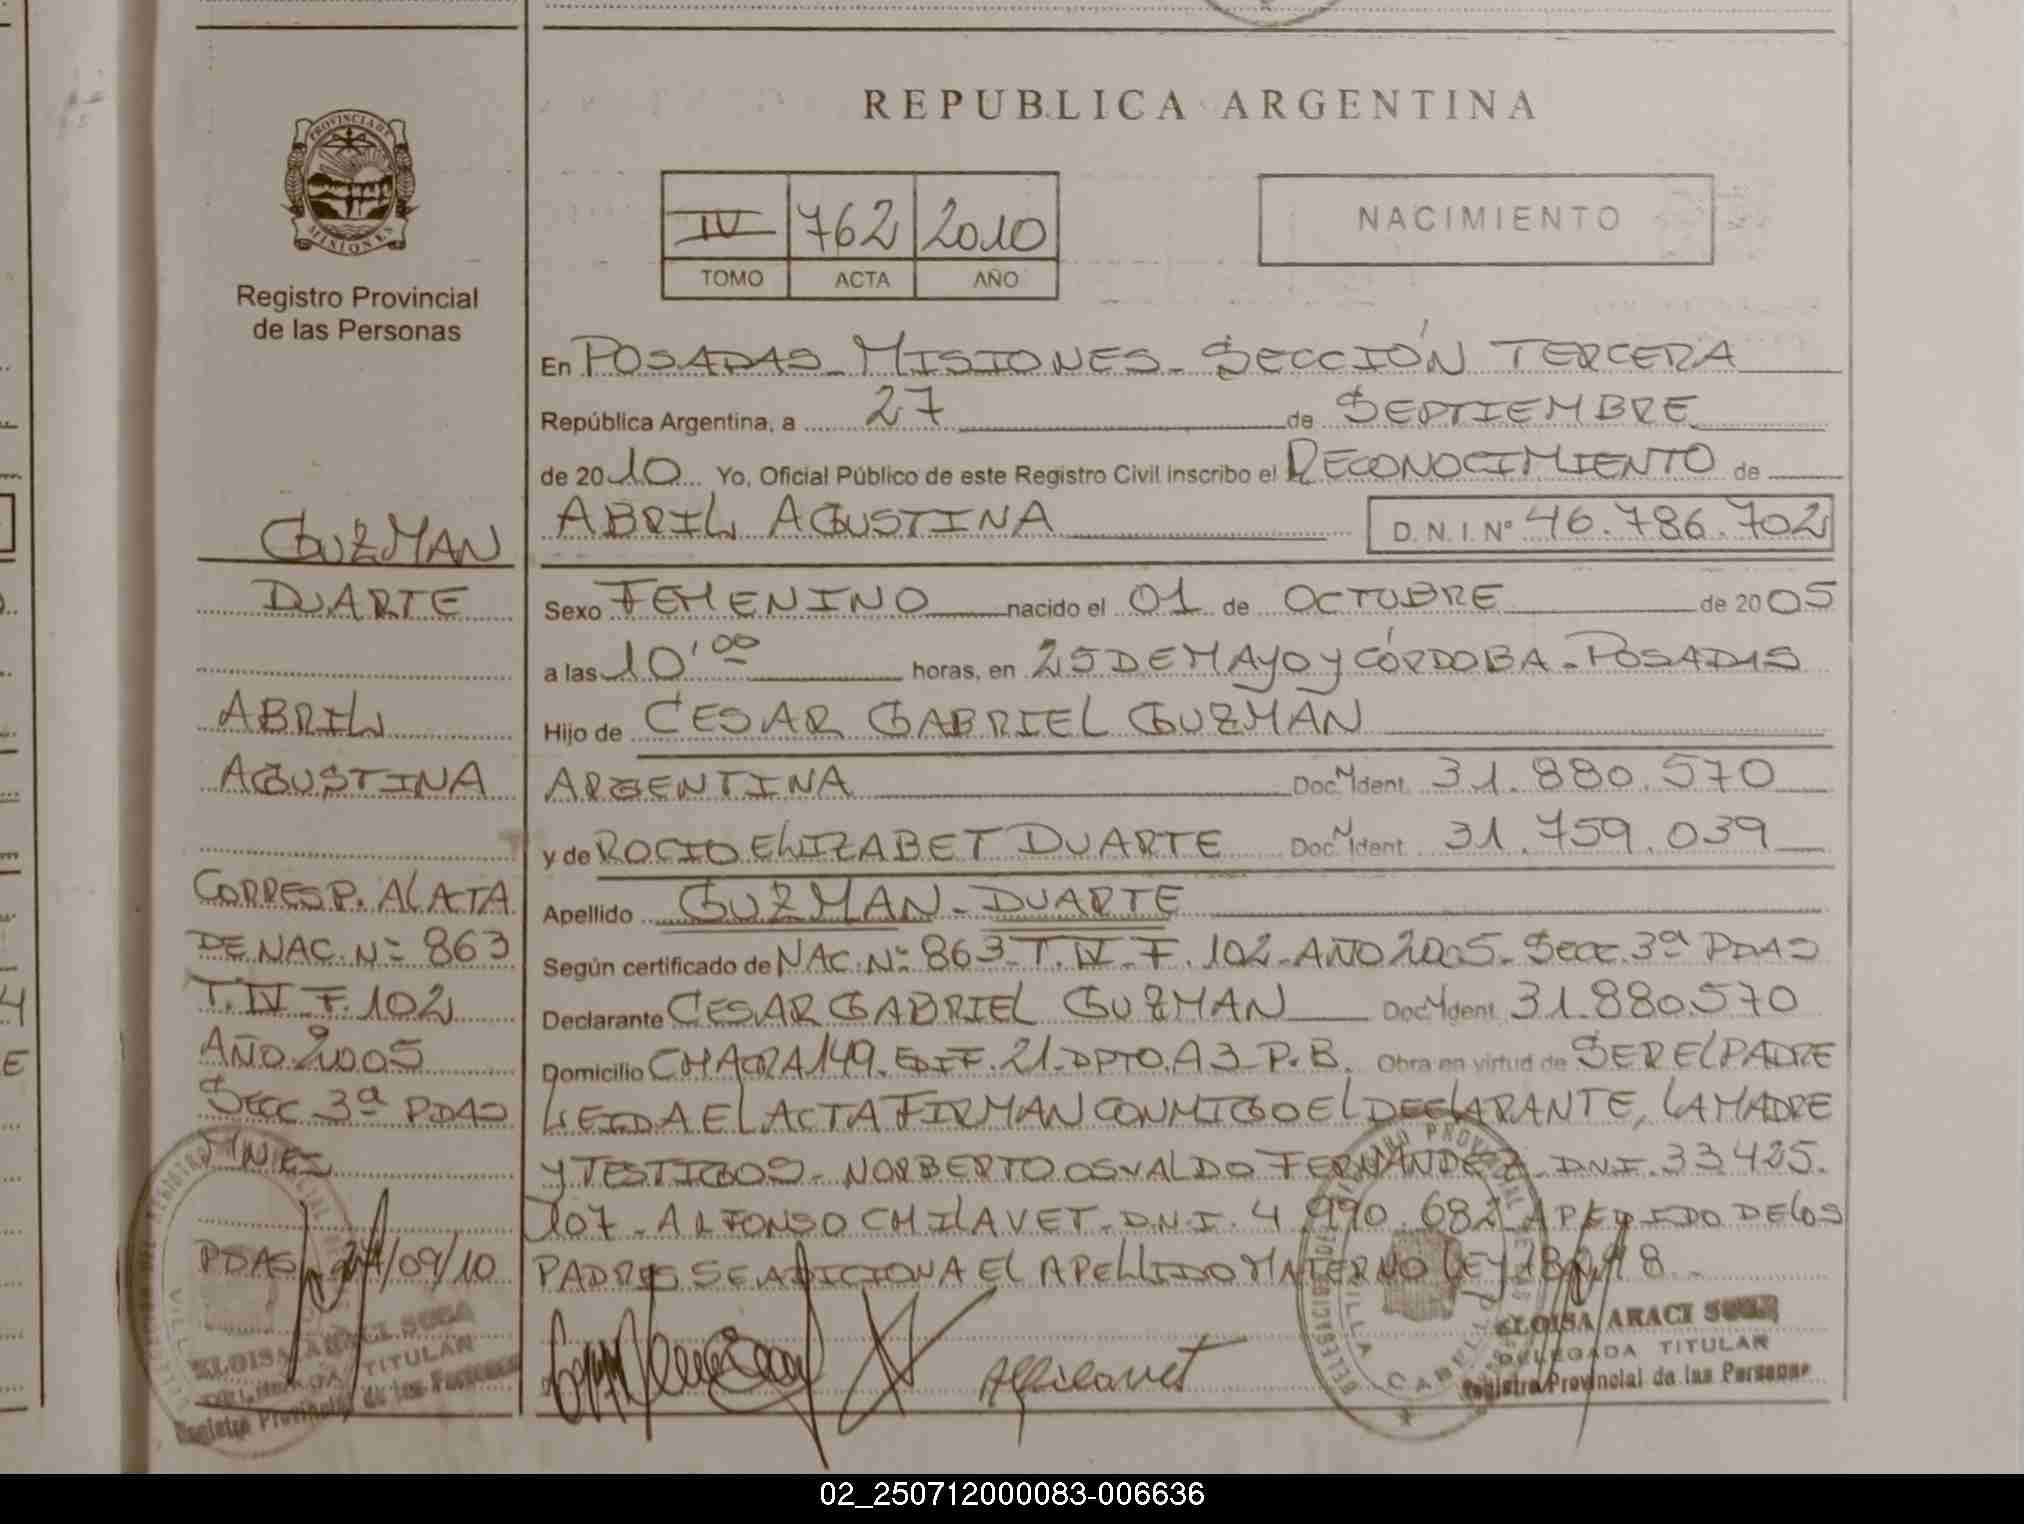 REPUBLICA ARGENTINA
PROVINCIA DE
MISIONES
Registro Provincial
de las Personas
IV 762 2010
TOMO ACTA AÑO
NACIMIENTO
GUZMAN
DUARTE
ABRIL
AGUSTINA
CORRESP. AL ACTA
DE NAC. Nº 863
T. IV F. 102
AÑO 2005
SECC 3ª PDAS
MNES
PDAS 27/09/10
ELOISA ARACI
DELEGADA TITULAR
Registro Provincial de las Personas
En POSADAS - MISIONES - SECCIÓN TERCERA
República Argentina, a 27 de SEPTIEMBRE
de 2010 Yo, Oficial Público de este Registro Civil inscribo el RECONOCIMIENTO de
ABRIL AGUSTINA D.N.I. Nº 46.786.702
Sexo FEMENINO nacido el 01 de OCTUBRE de 2005
a las 10'00 horas, en 25 DE MAYO y CÓRDOBA - POSADAS
Hijo de CESAR GABRIEL GUZMÁN
ARGENTINA Doc. Ident. 31.880.570
y de ROCIO ELIZABET DUARTE Doc. Ident. 31.759.039
Apellido GUZMAN - DUARTE
Según certificado de NAC. Nº 863 - T. IV - F. 102 - AÑO 2005 - SECC. 3ª PDAS
Declarante CESAR GABRIEL GUZMAN Doc. Ident. 31.880.570
Domicilio CHACRA 149. EDIF. 21 - DPTO. A3 - P.B. Obra en virtud de SER EL PADRE
LEIDA EL ACTA FIRMAN CONMIGO EL DECLARANTE, LA MADRE
Y TESTIGOS - NORBERTO OSVALDO FERNÁNDEZ - D.N.I. 33.425.
107 - ALFONSO CHILAVET - D.N.I. 4.990.682 A PEDIDO DE LOS
PADRES SE ADICIONA EL APELLIDO MATERNO LEY 18248
AChilavet
ELOISA ARACI
DELEGADA TITULAR
Registro Provincial de las Personas
VILLA CABELLO
02_250712000083-006636